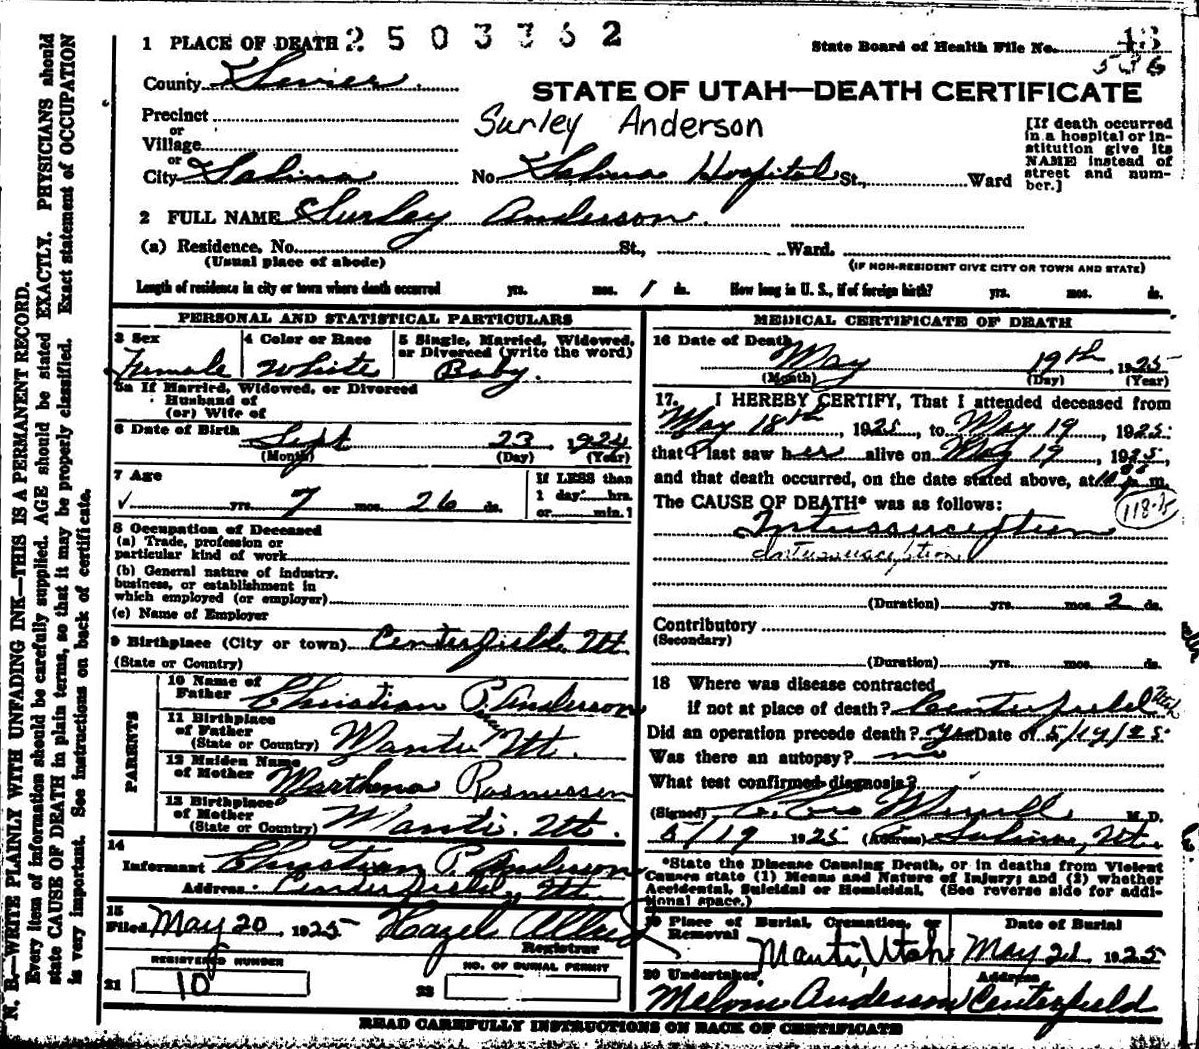 1 PLACE OF DEATH 2503362
State Board of Health File No. 43
536
County Sevier
STATE OF UTAH—DEATH CERTIFICATE
Precinct
or
Village
or
City Salina
Surley Anderson
No. Salina Hospital St., Ward
[If death occurred
in a hospital or in-
stitution give its
NAME instead of
street and num-
ber.]
2 FULL NAME Surley Anderson
(a) Residence, No. St., Ward.
(Usual place of abode)
(IF NON-RESIDENT GIVE CITY OR TOWN AND STATE)
Length of residence in city or town where death occurred yrs. mos. 1 ds. How long in U. S., if of foreign birth? yrs. mos. ds.
PERSONAL AND STATISTICAL PARTICULARS
3 Sex
Female
4 Color or Race
White
5 Single, Married, Widowed,
or Divorced (write the word)
Baby.
5a If Married, Widowed, or Divorced
Husband of
(or) Wife of
6 Date of Birth Sept 23 1924
(Month) (Day) (Year)
7 Age
yrs. 7 mos. 26 ds.
If LESS than
1 day hrs.
or min.?
8 Occupation of Deceased
(a) Trade, profession or
particular kind of work
(b) General nature of industry,
business, or establishment in
which employed (or employer)
(c) Name of Employer
9 Birthplace (City or town) Centerfield, Ut.
(State or Country)
PARENTS
10 Name of
Father Christian P. Anderson
11 Birthplace
of Father
(State or Country) Manti Ut.
12 Maiden Name
of Mother Marthena Rasmussen
13 Birthplace
of Mother
(State or Country) Manti, Ut.
14
Informant Christian P. Anderson
Address Centerfield, Ut
15
Filed May 20 1925 Hazel Allred
Registrar
REGISTERED NUMBER
21 10
NO. OF BURIAL PERMIT
22
MEDICAL CERTIFICATE OF DEATH
16 Date of Death
May 19th, 1925
(Month) (Day) (Year)
17. I HEREBY CERTIFY, That I attended deceased from
May 18th, 1925, to May 19, 1925
that I last saw her alive on May 19, 1925,
and that death occurred, on the date stated above, at p. m.
The CAUSE OF DEATH* was as follows:
Intussusception
Intussusception
(Duration) yrs. mos. 2 ds.
Contributory
(Secondary)
(Duration) yrs. mos. ds.
18 Where was disease contracted
if not at place of death? Centerfield Utah
Did an operation precede death? Yes Date of 5/19/25
Was there an autopsy? no
What test confirmed diagnosis?
(Signed) M.D.
5/19 1925 (Address) Salina, Ut.
*State the Disease Causing Death, or in deaths from Violent
Causes state (1) Means and Nature of Injury; and (2) whether
Accidental, Suicidal or Homicidal. (See reverse side for addi-
tional space.)
19 Place of Burial, Cremation, or
Removal
Manti, Utah
Date of Burial
May 21 1925
20 Undertaker
Melvin Anderson
Address
Centerfield
READ CAREFULLY INSTRUCTIONS ON BACK OF CERTIFICATE
N. B.—WRITE PLAINLY WITH UNFADING INK—THIS IS A PERMANENT RECORD.
Every item of information should be carefully supplied. AGE should be stated EXACTLY. PHYSICIANS should
state CAUSE OF DEATH in plain terms, so that it may be properly classified. Exact statement of OCCUPATION
is very important. See instructions on back of certificate.